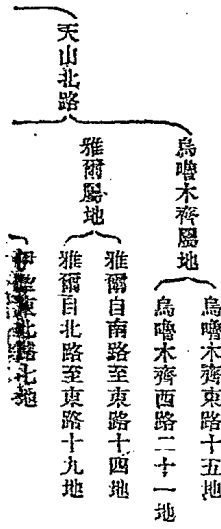 天山北路
烏嚕木齊屬地
烏嚕木齊東路十五地
烏嚕木齊西路二十一地
雅爾屬地
雅爾自南路至東路十四地
雅爾自北路至東路十九地
東北路七地